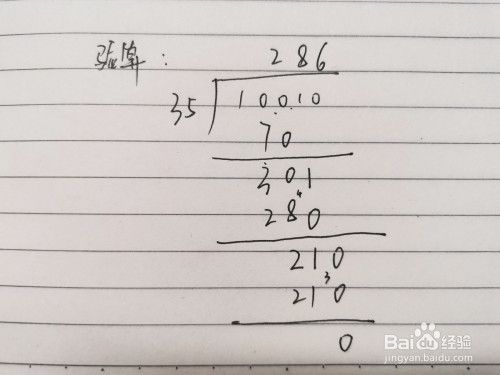 验算：
286
35 10010
70
301
4
280
210
3
210
0
Baidu经验
jingyan.baidu.com